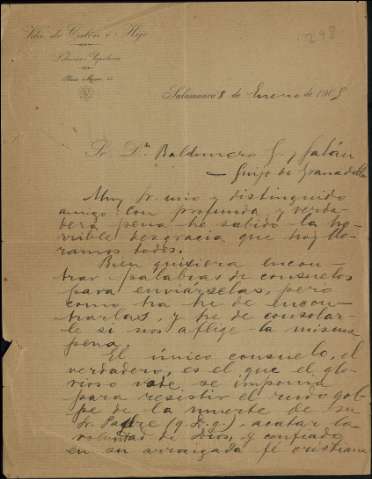 Vda. de Calón é Hijo
Salamanca 8 de Enero de 1905
Sr. Dn. Baldomero G. y Galán
Guijo de Granadilla
Muy Sr. mio y distinguido
amigo: Con profunda y verda-
dera pena he sabido la ho-
rrible desgracia que hoy llo-
ramos todos.
Bien quisiera encon-
trar palabras de consuelos
para enviárselas, pero
como ha he de encon-
trarlas, y he de consolar-
le si nos aflige la misma
pena.
El único consuelo, el
verdadero, es el que el glo-
rioso se imponía
para resistir el rudo gol-
pe de la muerte de su
Sr. Padre (q. D. g.), acatar la
voluntad de Dios, y confiado
en su arraigada fé cristiana